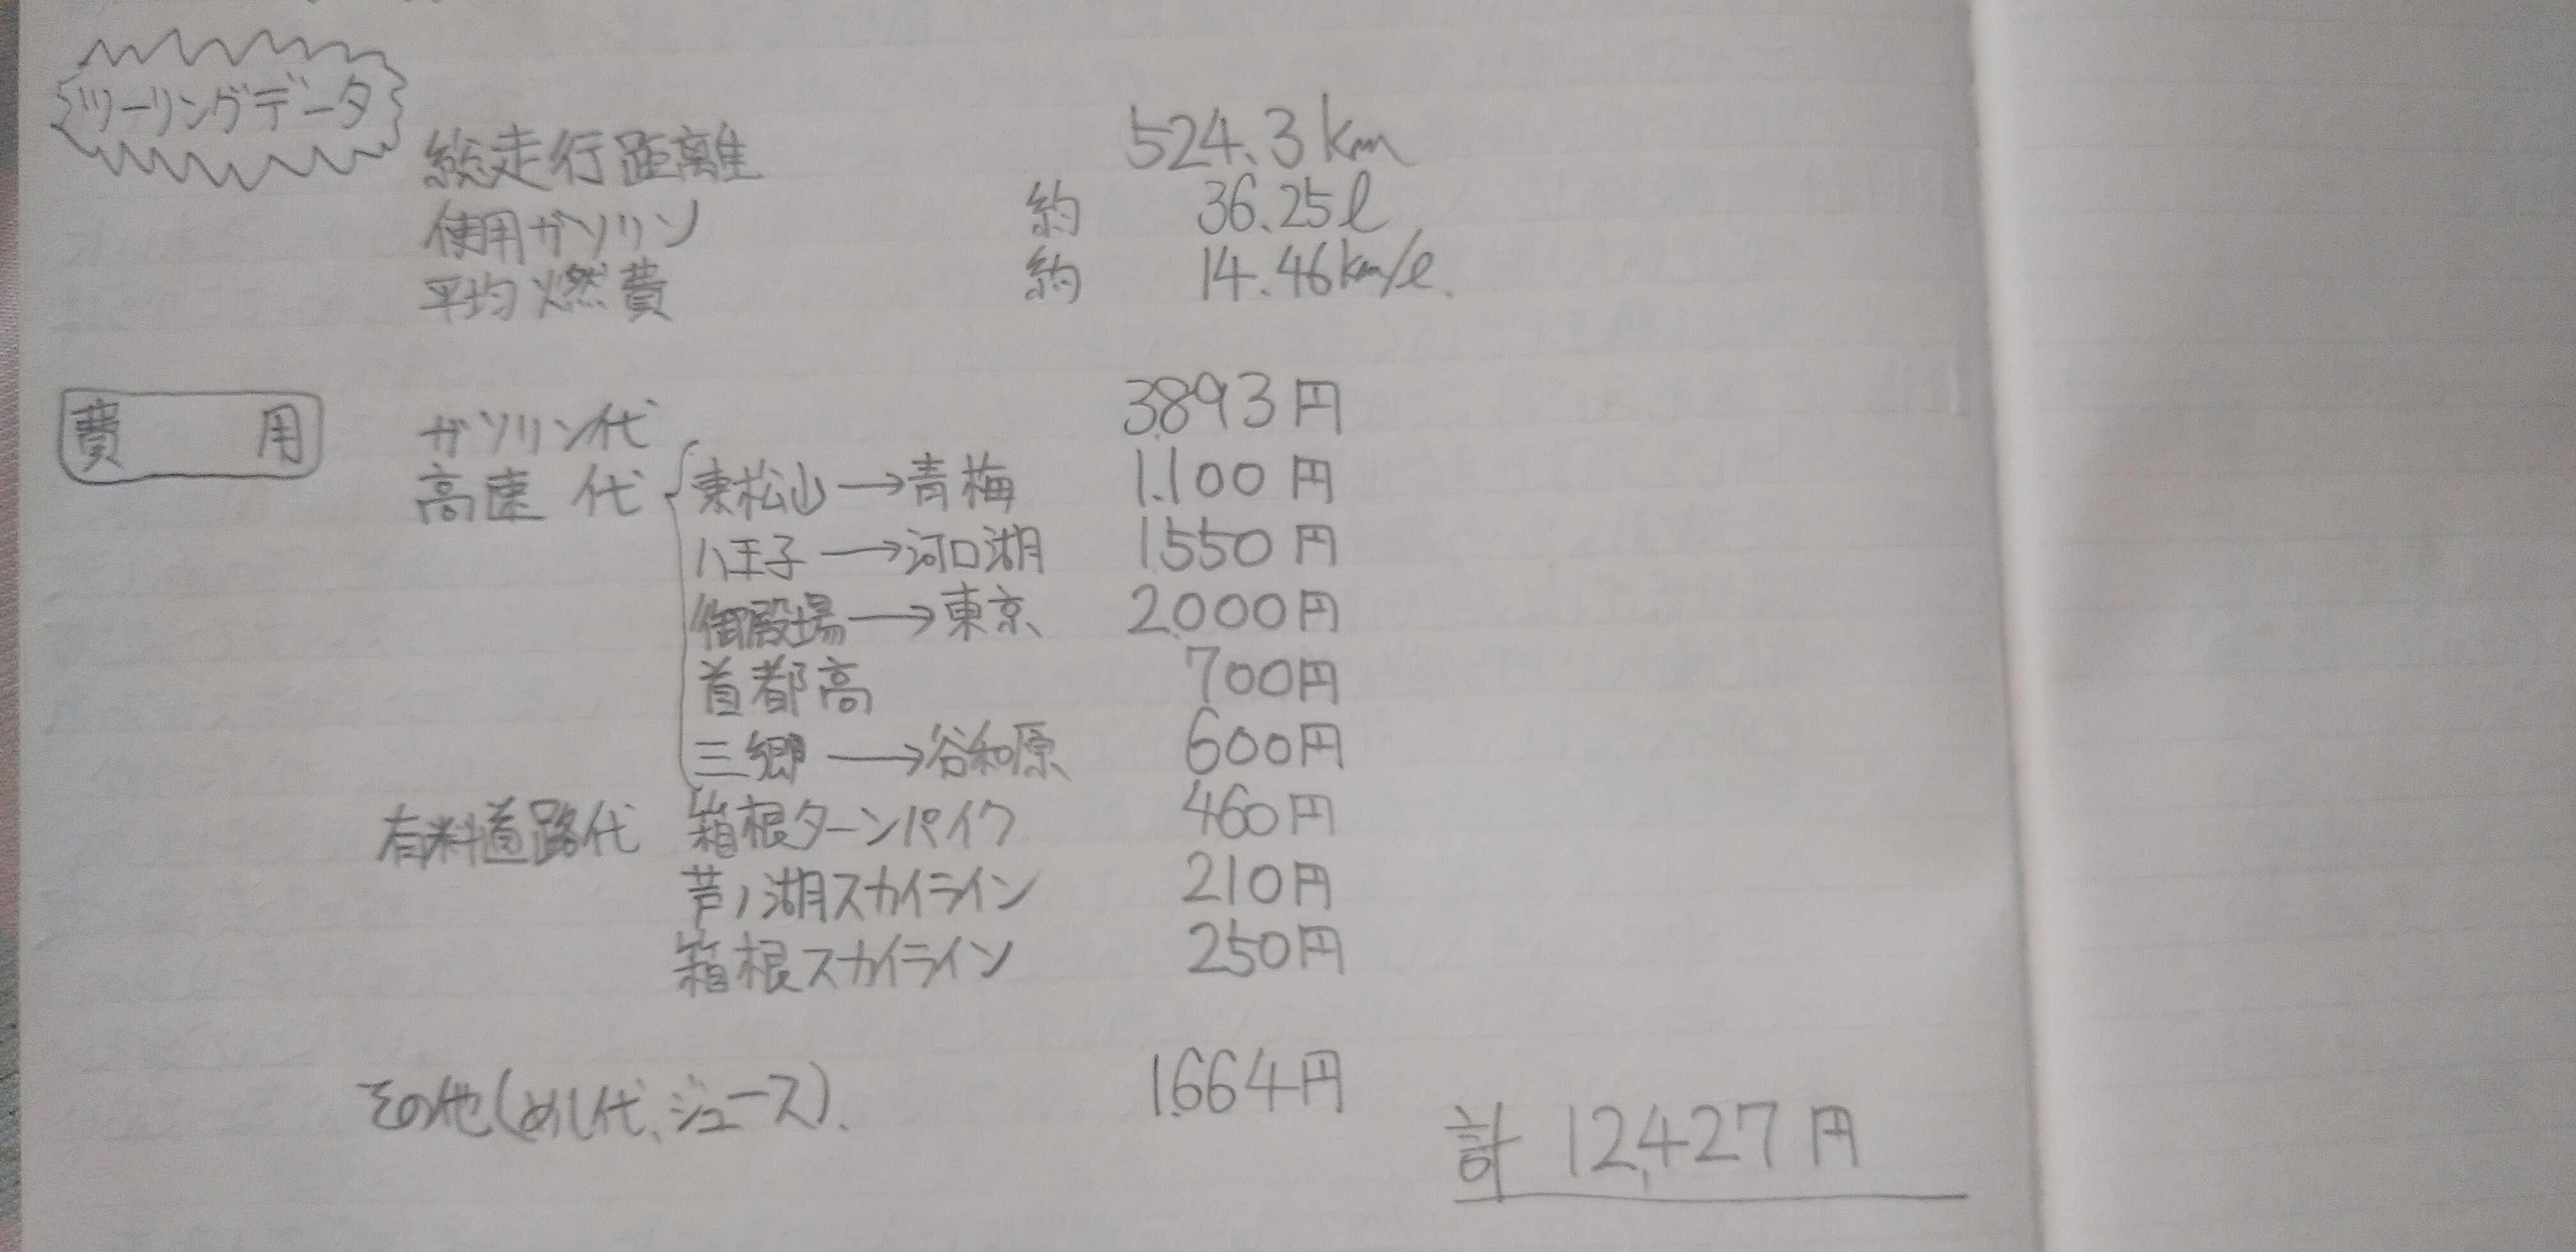 ツーリングデータ
総走行距離 524.3km
使用ガソリン 約 36.25ℓ
平均燃費 約 14.46km/ℓ.
費用
ガソリン代 3,893円
高速代 東松山→青梅 1,100円
八王子→河口湖 1,550円
御殿場→東京 2,000円
首都高 700円
三郷→谷和原 600円
有料道路代 箱根ターンパイク 460円
芦ノ湖スカイライン 210円
箱根スカイライン 250円
その他(めし代、ジュース). 1,664円
計 12,427円